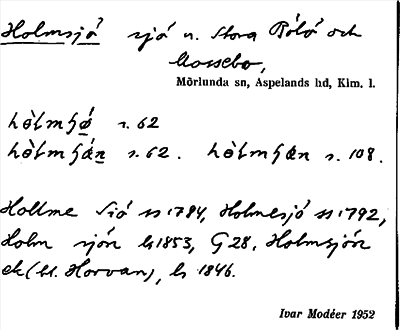 Holmsjö sjö n. Stora Bölö och
Mossebo,
Mörlunda sn, Aspelands hd, Klm. l.
s. 62
s. 62. s. 108.
Hollme Siö 1784, Holmesjö 1792,
Holm sjön 1853, G 28, Holmsjön
ek (bl. Horvan), 1846.
Ivar Modéer 1952